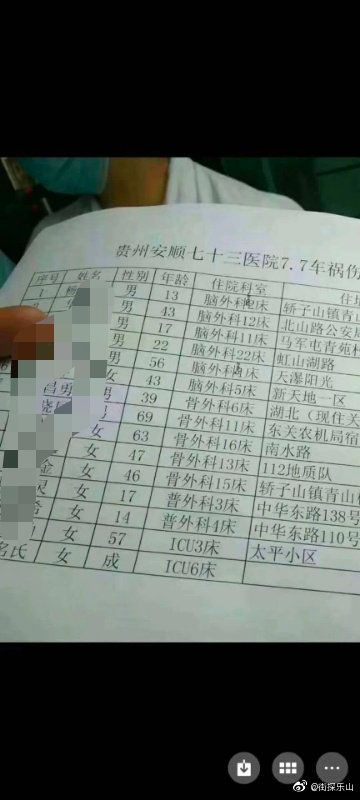 贵州安顺七十三医院7.7车祸伤
序号 姓名 性别 年龄 住院科室 住
1 杨 男 13 脑外科床 轿子山镇青山
男 43 脑外科12床 北山路公安
男 17 脑外科11床 马军屯青苑
男 22 脑外科22床 虹山湖路
56 天瀑阳光
女 43 脑外科5床 新天地一区
昌勇 男 39 骨外科6床 湖北（现住关
69 骨外科11床 东关农机局宿
女 63 骨外科16床 南水路
女 47 骨外科13床 112地质队
女 46 骨外科15床 轿子山镇青山
女 17 普外科3床 中华东路138号
女 14 普外科4床 中华东路110号
女 57 ICU3床 太平小区
名氏 女 成 ICU6床
@街探乐山